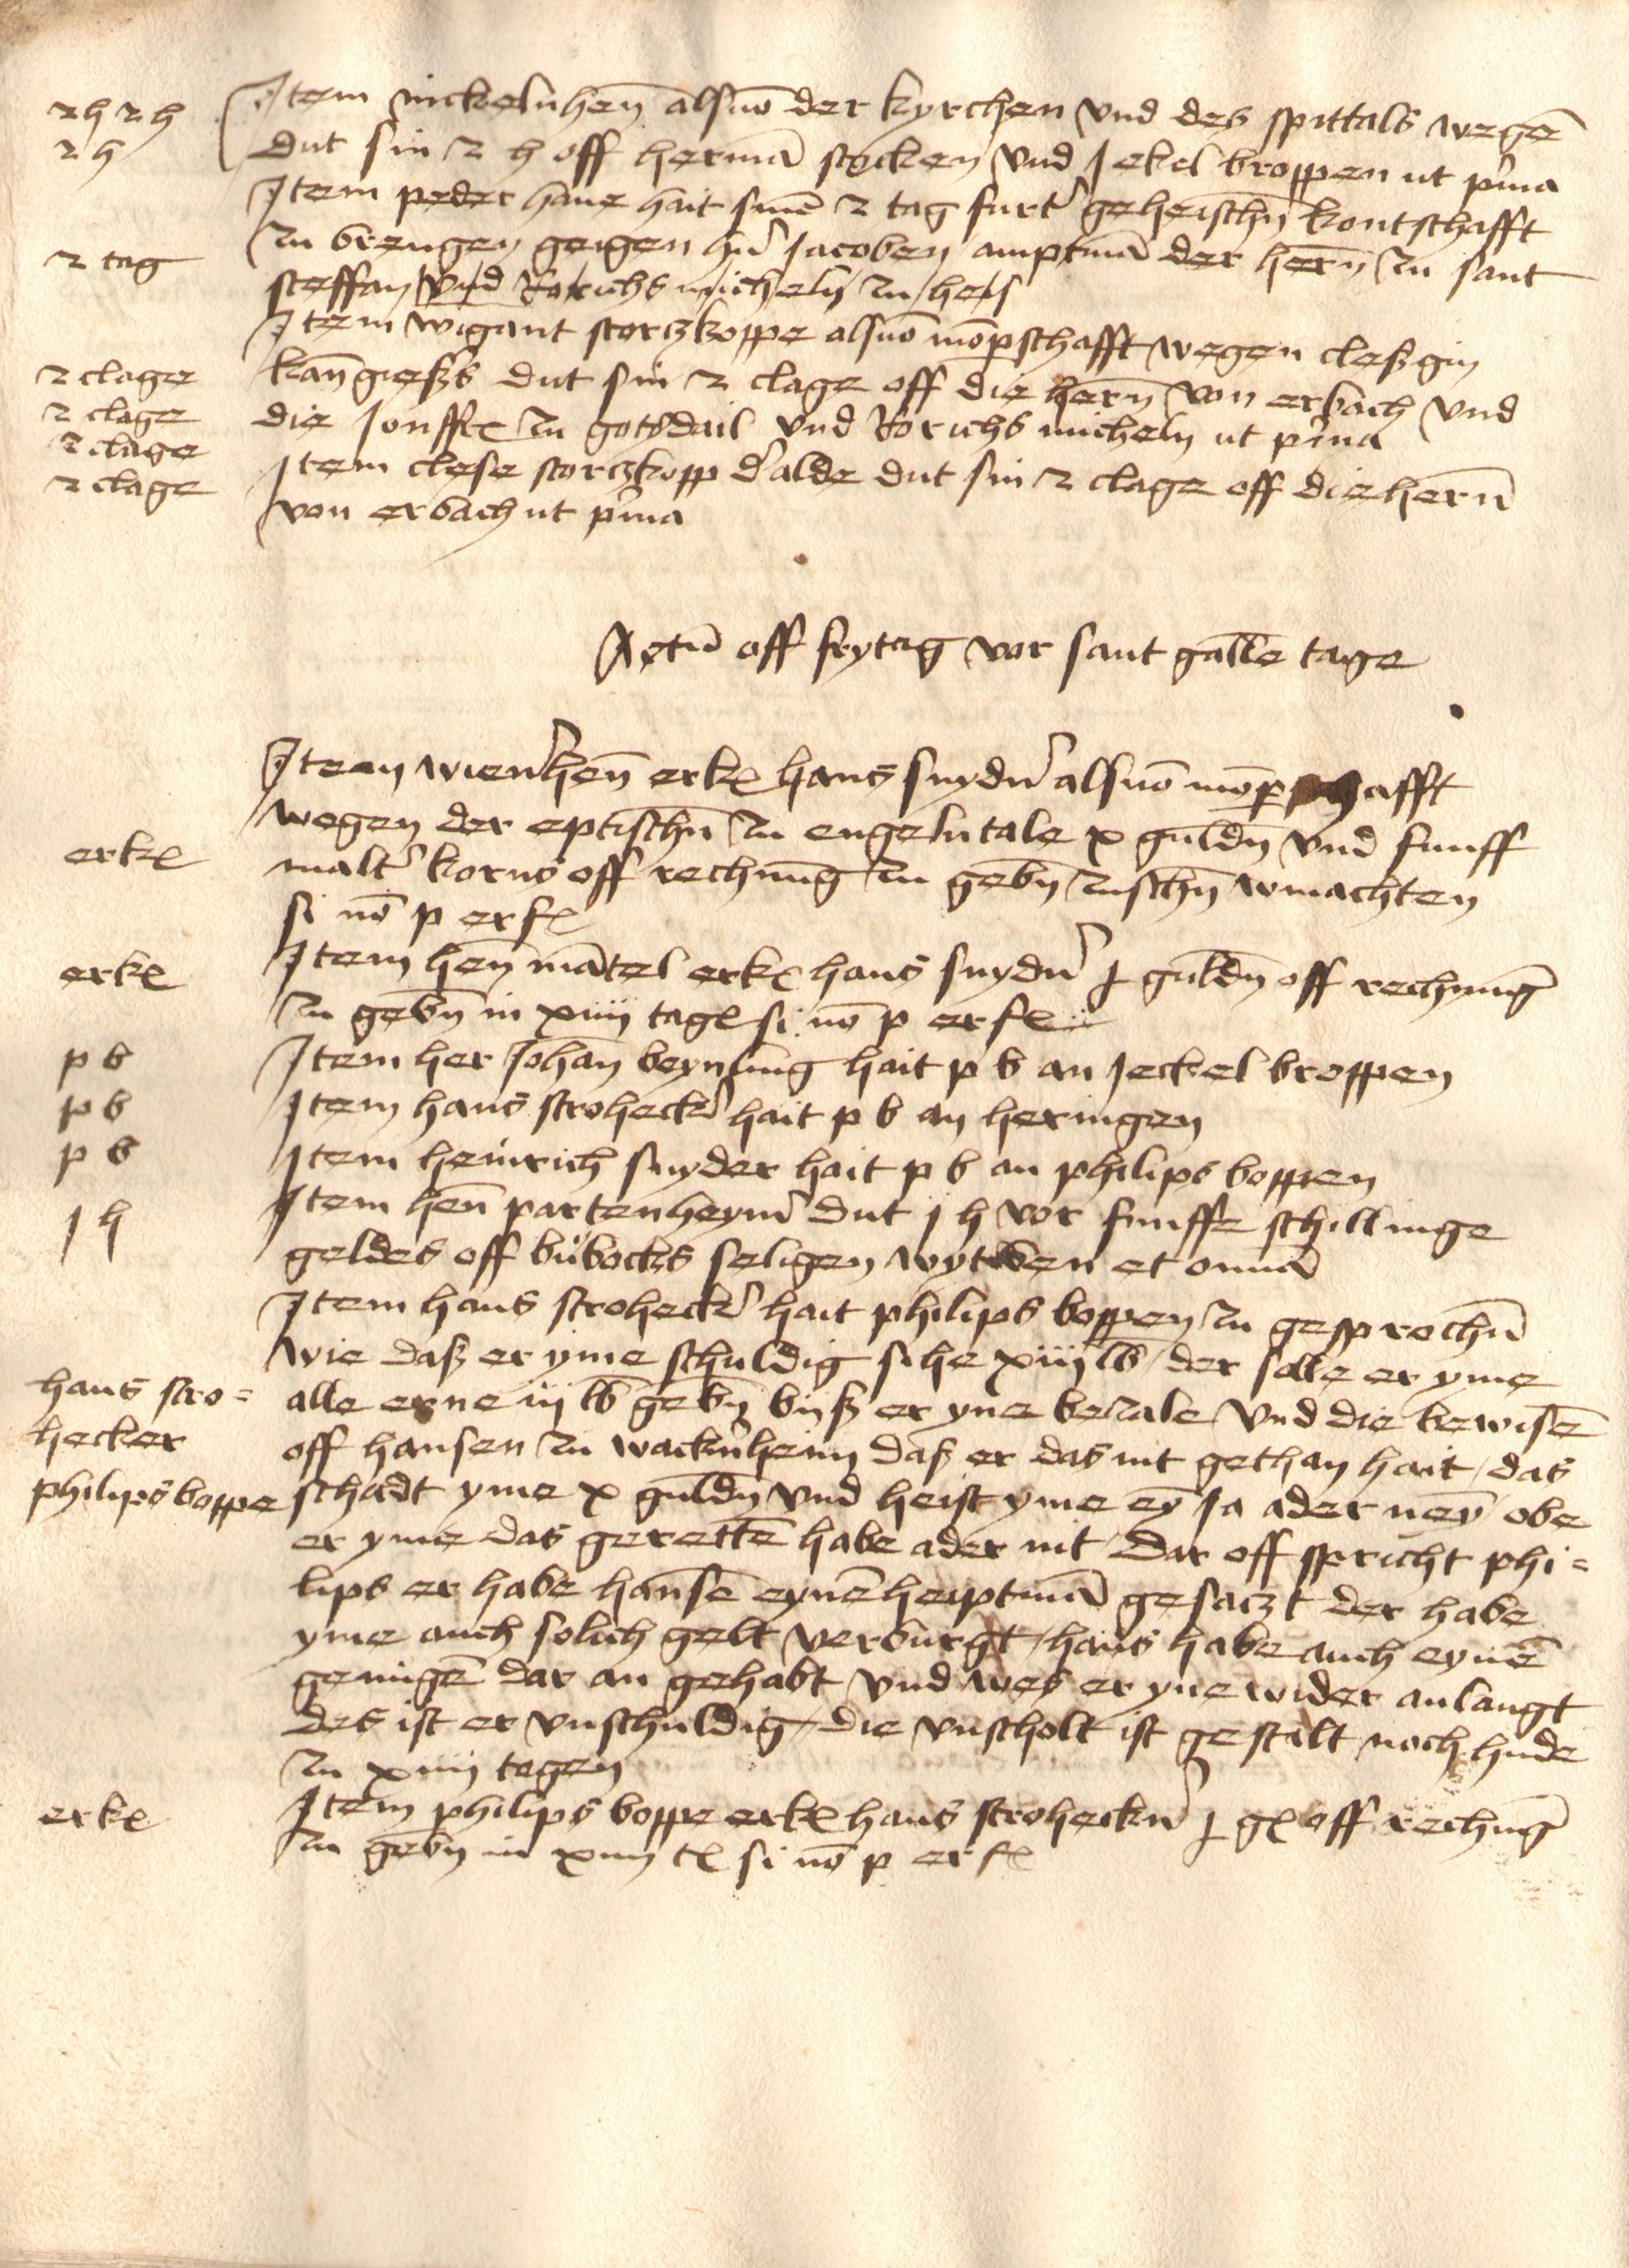 2 h 2 h
2 h
Item nickeln hen̄ als vō der kyrchen vnd des spittals wegē
dut sin 2 h off hermā stocken vnd Jekel broppen ut p'ma
Item peder haue hait sinē 2 tag furt' geheischn̄ kontschafft
2 tag
zu brengen geigen h'n Jacoben amptmā der hern̄ zu sant
steffan vnd Rorichs micheln zu heis
Item wigant stortzkoppe als vō mōpschafft wegen cleßgin
2 clage
kan̄gieß's dut sin 2 clage off die hern̄ von erbach vnd
2 clage
die Jonffr zu gotsdail vnd Rorichs micheln ut p'ma
2 clage
2 clage
Item clese stortzkopp d' alde dut sin 2 clage off die hern̄
von erbach ut p'ma
Actū off frytag vor sant galle tage
Item wien'hen̄ erk hans snyd'n als vō mōpschafft
wegen der eptischn̄ zu engelntale x guldn̄ vnd funff
erk
malt' korns off rechnūg zu gebn̄ zuschn̄ winachten
si nō p erf
erk
Item hen̄ mātel erk hans snyd'n j guldn̄ off rechnung
zu gebn̄ in xiiij tag si nō p erf
p b
Item her Johan beynling hait p b an Jeckel broppen
p b
Item hans stroheck' hait p b an heringen
p b
Item heinrich snyder hait p b an philips boppen
j h
Item hen̄ partenheym' dut j h vor funffe schillinge
geldes off bubocks seligen wytwen et om̄ia
Item hans stroheck' hait philips boppen zu gesprochn̄
wie daß er yme schuldig sihe xiiij lb der solle er yme
hans stro=
alle erne iij lb gebn̄ byß er yne bezale vnd die bewisē
hecker
off hansen zu wack'nheim daß er das nit gethan hait das
philips boppe
schadt yme x guldn̄ vnd heist yme ey̅ ja ader ney̅ obe
er yme das gerettē habe ader nit Dar off spricht phi=
lips er habe hansē eynē heiptmā gesatzt der habe
yme auch solich gelt verburgt hans habe auch eynē
genugē dar an gehabt vnd wes er yne wider anlangt
des ist er vnschuldig die vnscholt ist gestalt noch hude
zu xiiij tagen
erk
Item philips boppe erk hans stroheck'n j g off rechnūg
zu gebn̄ in xiiij t si nō p erf